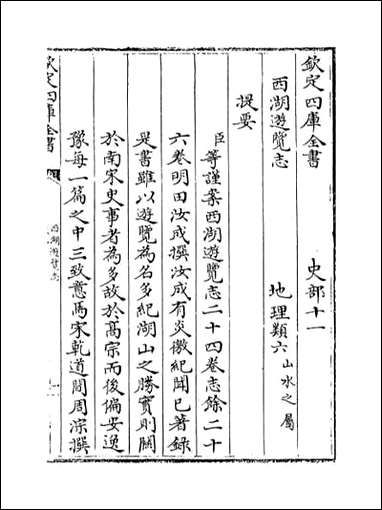 欽定四庫全書
史部十一
西湖遊覽志
地理類六山水之屬
提要
臣等謹案西湖遊覽志二十四卷志餘二十
六卷明田汝成撰汝成有炎徼紀聞已著錄
是書雖以遊覽為名多紀湖山之勝實則關
於南宋史事者為多故於髙宗而後偏安逸
豫每一篇之中三致意焉宋乾道間周淙撰
欽定四庫全書
西湖遊覽志